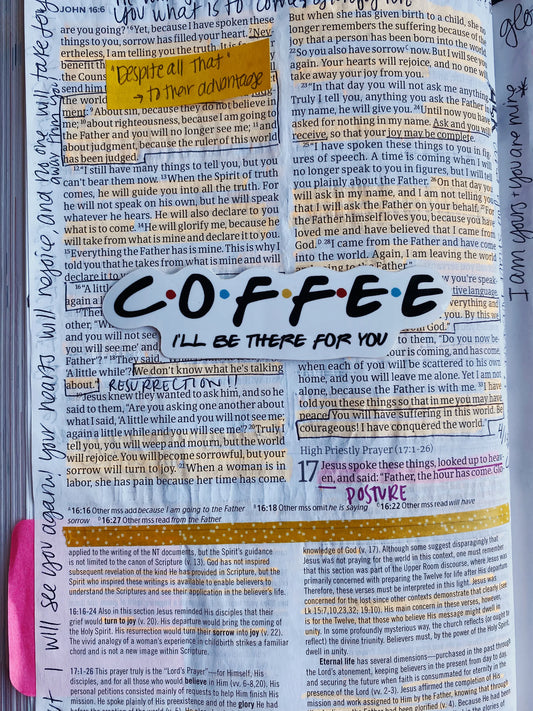 you what is to come
JOHN 16:6
are you going?' ⁶Yet, because I have spoken these
things to you, sorrow has filled your heart. ⁷Nev-
ertheless, I am telling you the truth. It is
benefit
the Couns
send him
"Despite all that"
→ to their advantage
the world
ment: ⁹About sin, because they do not believe in
me; ¹⁰about righteousness, because I am going to
the Father and you will no longer see me; ¹¹and
about judgment, because the ruler of this world
has been judged.
¹²"I still have many things to tell you, but you
can't bear them now. ¹³When the Spirit of truth
comes, he will guide you into all the truth. For
he will not speak on his own, but he will speak
whatever he hears. He will also declare to you
what is to come. ¹⁴He will glorify me, because he
will take from what is mine and declare it to you.
¹⁵Everything the Father has is mine. This is why I
told you that he takes from what is mine and will
declare it to you
¹⁶"A little
again a l
¹⁷The
other, "Wh
and you will not see
you will see me' and
Father'?" ¹⁸They said,
'A little while'? We don't know what he's talking
about."
RESURRECTION!!
¹⁹Jesus knew they wanted to ask him, and so he
said to them, "Are you asking one another about
what I said, 'A little while and you will not see me;
again a little while and you will see me'? ²⁰Truly I
tell you, you will weep and mourn, but the world
will rejoice. You will become sorrowful, but your
sorrow will turn to joy. ²¹When a woman is in
labor, she has pain because her time has come.
But when she has given birth to a child, she no
longer remembers the suffering because of the
joy that a person has been born into the world.
²²So you also have sorrow now. But I will see you
again. Your hearts will rejoice, and no one will
take away your joy from you.
²³"In that day you will not ask me anything.
Truly I tell you, anything you ask the Father in
my name, he will give you. ²⁴Until now you have
asked for nothing in my name. Ask and you will
receive, so that your joy may be complete.
²⁵"I have spoken these things to you in fig-
ures of speech. A time is coming when I will
no longer speak to you in figures, but I will tell
you plainly about the Father. ²⁶On that day you
will ask in my name, and I am not telling you
that I will ask the Father on your behalf. ²⁷For
the Father himself loves you, because you have
loved me and have believed that I came from
God. ²⁸I came from the Father and have come
into the world. Again, I am leaving the world
and going to the Father."
now you're speak-
tive language.
everything and
you. By this we
om God."
to them, "Do you now be-
our is coming, and has come,
when each of you will be scattered to his own
home, and you will leave me alone. Yet I am not
alone, because the Father is with me. ³³I have
told you these things so that in me you may have
peace. You will have suffering in this world. Be
courageous! I have conquered the world."
High Priestly Prayer (17:1-26)
17 Jesus spoke these things, looked up to heav-
en, and said: "Father, the hour has come. Glo
POSTURE
COFFEE
I'LL BE THERE FOR YOU
16:16 Other mss add because I am going to the Father
16:18 Other mss omit he is saying
16:22 Other mss read will have
sorrow
16:27 Other mss read from the Father
applied to the writing of the NT documents, but the Spirit's guidance
is not limited to the canon of Scripture (v. 13). God has not inspired
subsequent revelation of the kind He has provided in Scripture, but the
Spirit who inspired these writings is available to enable believers to
understand the Scriptures and see their application in the believer's life.
16:16-24 Also in this section Jesus reminded His disciples that their
grief would turn to joy (v. 20). His departure would bring the coming of
the Holy Spirit. His resurrection will turn their sorrow into joy (v. 22).
The vivid analogy of a woman's experience in childbirth strikes a familiar
chord and is not a new image within Scripture.
17:1-26 This prayer truly is the "Lord's Prayer"—for Himself; His
disciples, and for all those who would believe in Him (vv. 6-8,20). His
personal petitions consisted mainly of requests to help Him finish His
mission. He spoke plainly of His preexistence and of the glory He had
knowledge of God (v. 17). Although some suggest disparagingly that
Jesus was not praying for the world in this context, one must remember
that this section was part of the Upper Room discourse, where Jesus was
primarily concerned with preparing the Twelve for life after His departure.
Therefore, these verses must be interpreted in this light. Jesus was
concerned for the lost since other contexts demonstrate that clearly (see
Lk 15:7,10,23,32; 19:10). His main concern in these verses, however,
is for the Twelve, that those who believe His message might dwell in
unity. In some profoundly mysterious way, the church reflects (or ought to
reflect) the divine triunity. Believers must, by the power of the Holy Spirit,
dwell in unity.
Eternal life has several dimensions—purchased in the past through
the Lord's atonement, keeping believers in the present from day to day,
and securing the future when faith is consummated for eternity in the
presence of the Lord (vv. 2-3). Jesus affirmed the completion of His
mission and work assigned to Him by the Father, knowing that through
I will see you again! your hearts will rejoice, and no one will take your joy
away from you.
I am yours + you are mine